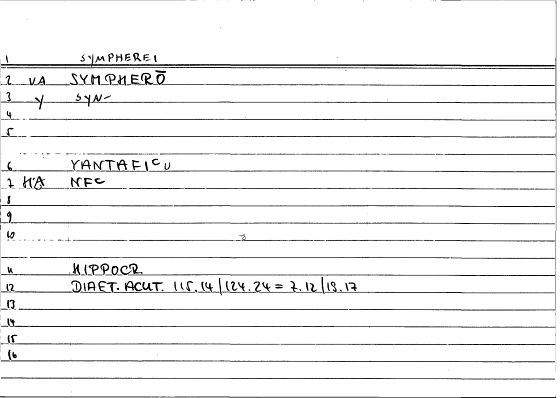 1 SYMPHEREI
2 VA SYMPHERŌ
3 Y SYN-
4
5
6 YANTAFICU
7 HA NFC
8
9
10
11 HIPPOCR
12 DIAET. ACUT. 115.14/124.24 = 7.12/19.17
13
14
15
16